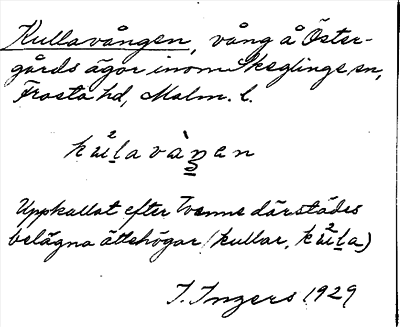 Kullavången, vång å Öster-
gårds ägor inom Skeglinge sn,
Frosta hd, Malm. l.
Uppkallat efter tvenne därstädes
belägna ättehögar (kullar,
I. Ingers 1929